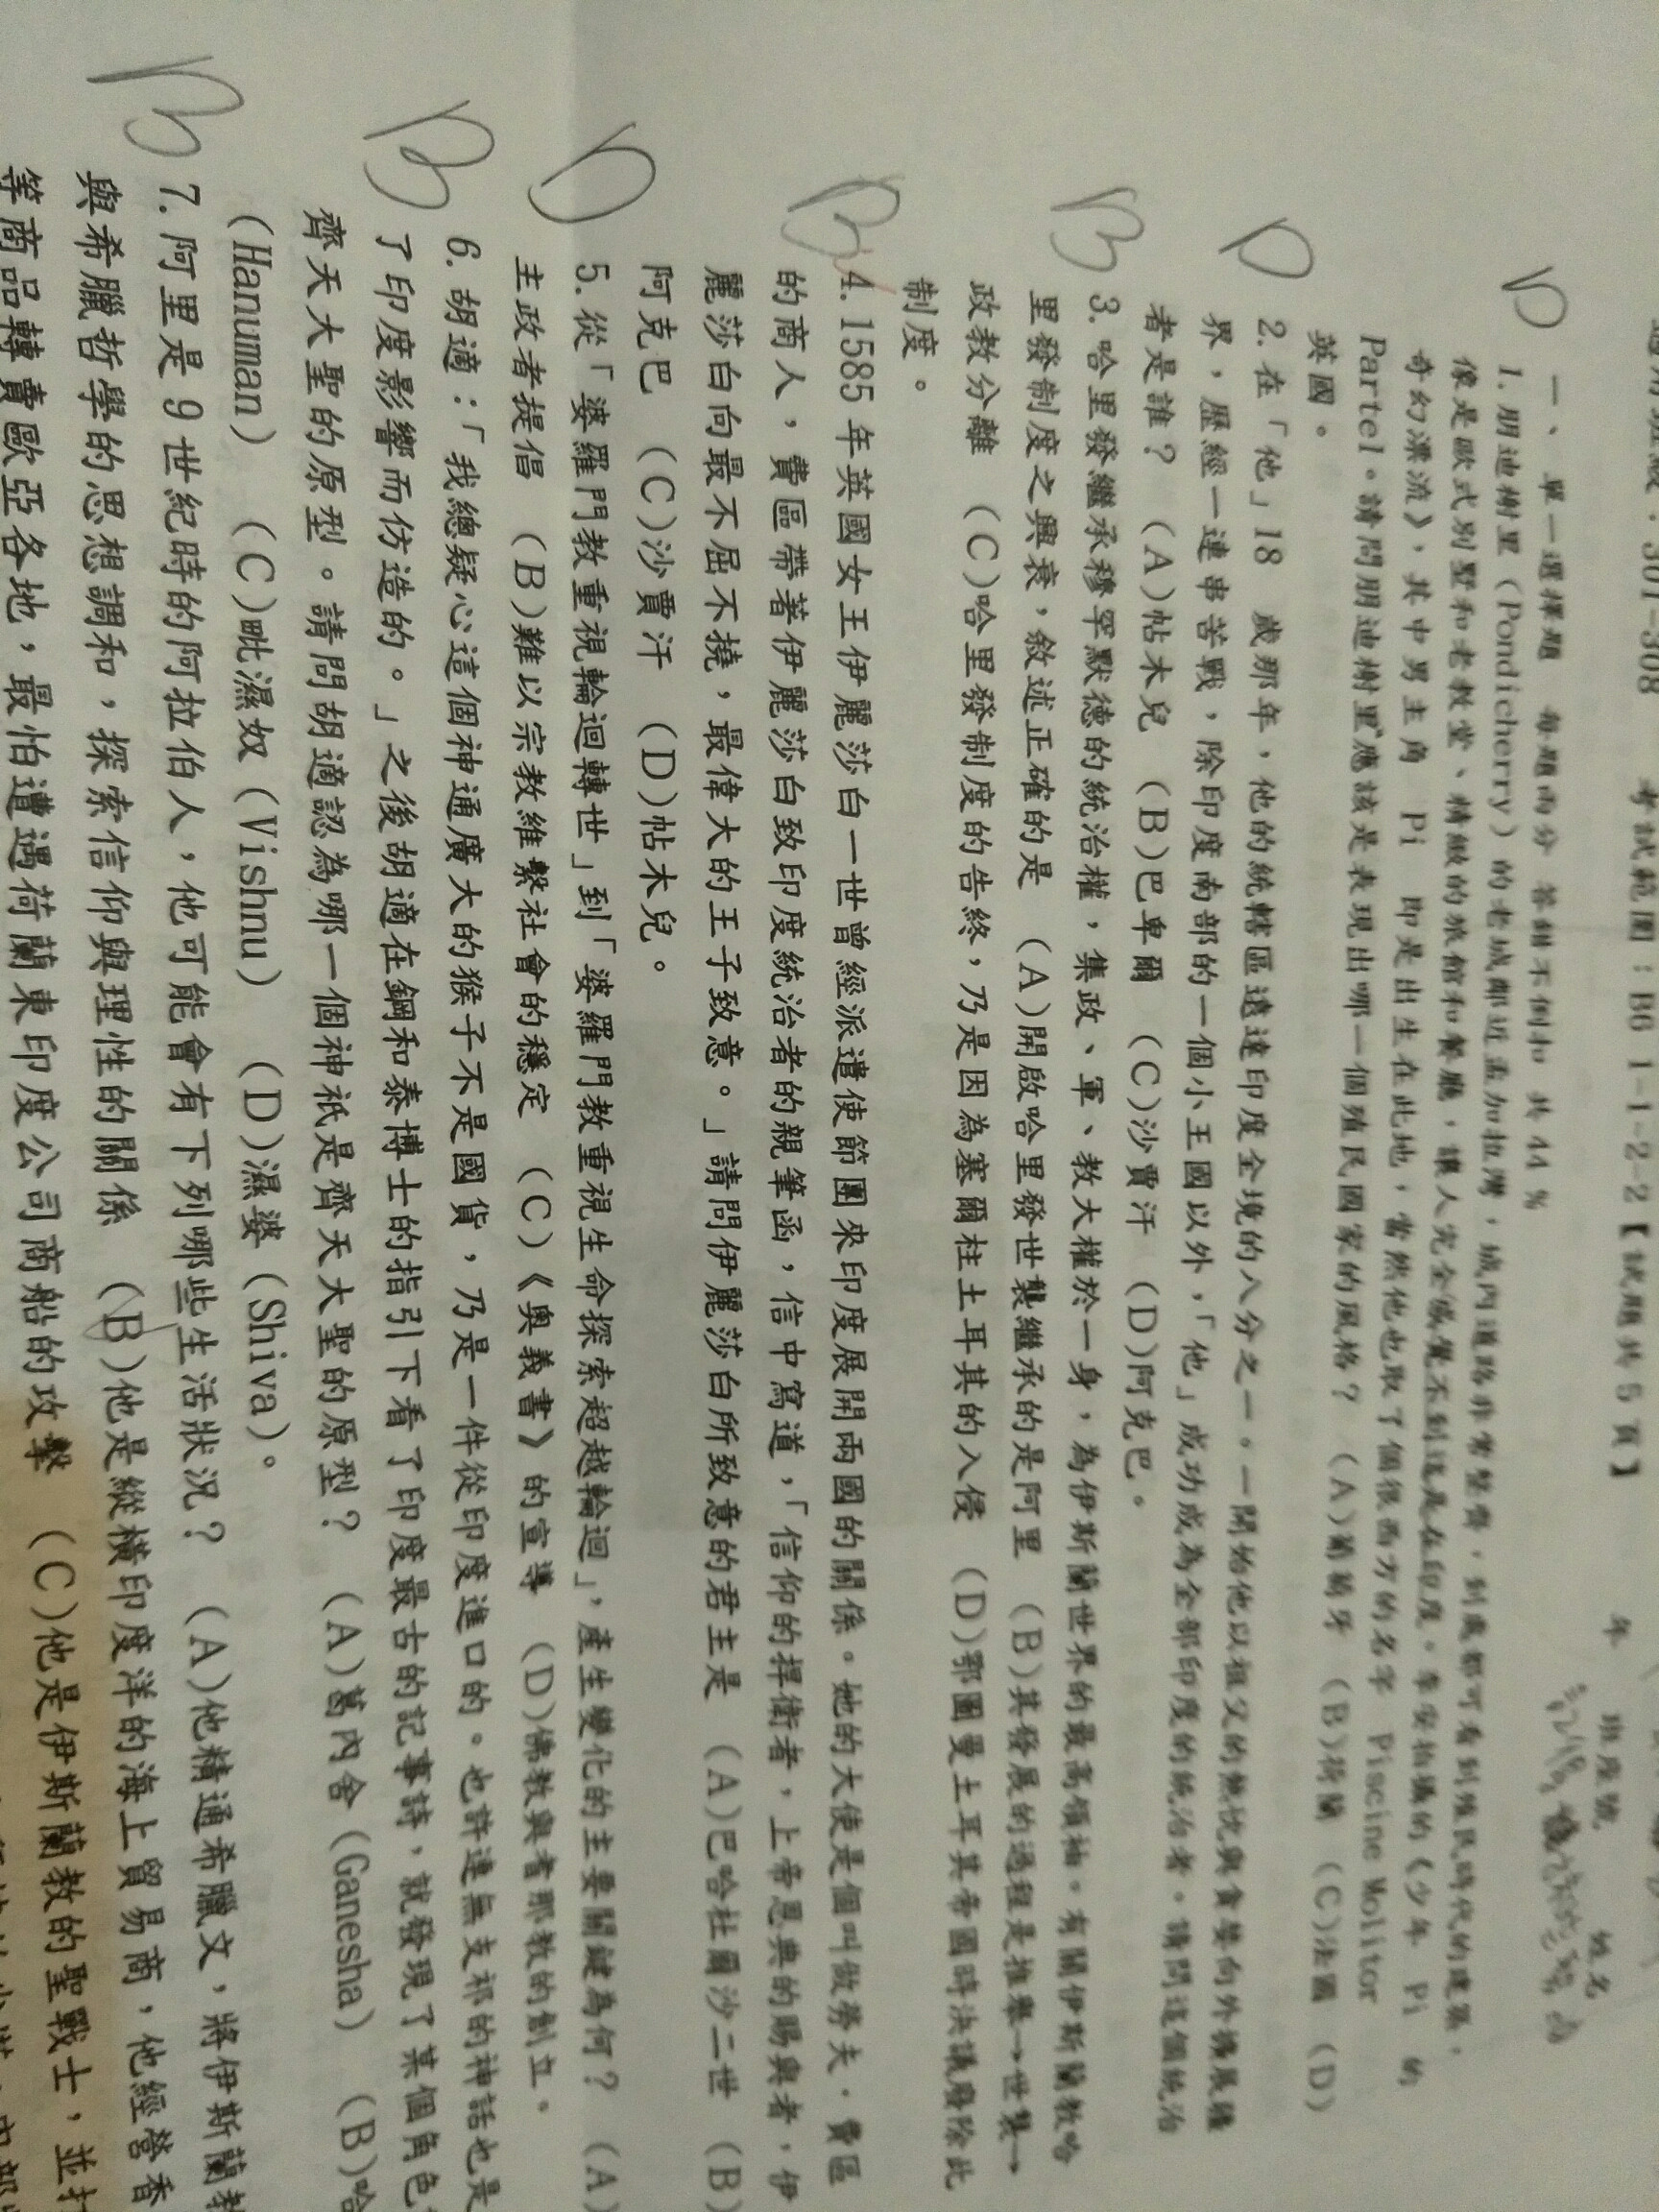 適用班級：301-308 考試範圍：B6 1-1~2-2【試題共5頁】 年 班座號 姓名
一、單一選擇題 每題兩分 答錯不倒扣 共44%
D 1.朋迪榭里（Pondicherry）的老城鄰近孟加拉灣，城內道路非常整齊，到處都可看到殖民時代的建築，
像是歐式別墅和老教堂、精緻的旅館和餐廳，讓人完全感覺不到這是在印度。李安拍攝的《少年 Pi 的
奇幻漂流》，其中男主角 Pi 即是出生在此地，當然他也取了個很西方的名字 Piscine Molitor
Partel。請問朋迪榭里應該是表現出哪一個殖民國家的風格？ (A)葡萄牙 (B)荷蘭 (C)法國 (D)
英國。
D 2.在「他」18 歲那年，他的統轄區遠達印度全境的八分之一。一開始他以祖父的無忱與貪婪向外擴展疆
界，歷經一連串苦戰，除印度南部的一個小王國以外，「他」成功成為全部印度的統治者。請問這個統治
者是誰？ (A)帖木兒 (B)巴卑爾 (C)沙賈汗 (D)阿克巴。
B 3.哈里發繼承穆罕默德的統治權，集政、軍、教大權於一身，為伊斯蘭世界的最高領袖。有關伊斯蘭教哈
里發制度之興衰，敘述正確的是 (A)開啟哈里發世襲繼承的是阿里 (B)其發展的過程是推舉→世襲→
政教分離 (C)哈里發制度的告終，乃是因為塞爾柱土耳其的入侵 (D)鄂圖曼土耳其帝國時決議廢除此
制度。
B 4.1585年英國女王伊麗莎白一世曾經派遣使節團來印度展開兩國的關係。她的大使是個叫做勞夫．費區
的商人，費區帶著伊麗莎白致印度統治者的親筆函，信中寫道，「信仰的捍衛者，上帝恩典的賜與者，伊
麗莎白向最不屈不撓，最偉大的王子致意。」請問伊麗莎白所致意的君主是 (A)巴哈杜爾沙二世 (B)
阿克巴 (C)沙賈汗 (D)帖木兒。
D 5.從「婆羅門教重視輪迴轉世」到「婆羅門教重視生命探索超越輪迴」，產生變化的主要關鍵為何？ (A)
主政者提倡 (B)難以宗教維繫社會的穩定 (C)《奧義書》的宣導 (D)佛教與耆那教的創立。
B 6.胡適：「我總疑心這個神通廣大的猴子不是國貨，乃是一件從印度進口的。也許連無支祁的神話也是
了印度影響而仿造的。」之後胡適在鋼和泰博士的指引下看了印度最古的記事詩，就發現了某個角色
齊天大聖的原型。請問胡適認為哪一個神祇是齊天大聖的原型？ (A)葛內舍（Ganesha） (B)哈
（Hanuman） (C)毗濕奴（Vishnu） (D)濕婆（Shiva）。
B 7.阿里是9世紀時的阿拉伯人，他可能會有下列哪些生活狀況？ (A)他精通希臘文，將伊斯蘭教
與希臘哲學的思想調和，探索信仰與理性的關係 (B)他是縱橫印度洋的海上貿易商，他經營香
等商品轉賣歐亞各地，最怕遭遇荷蘭東印度公司商船的攻擊 (C)他是伊斯蘭教的聖戰士，並打